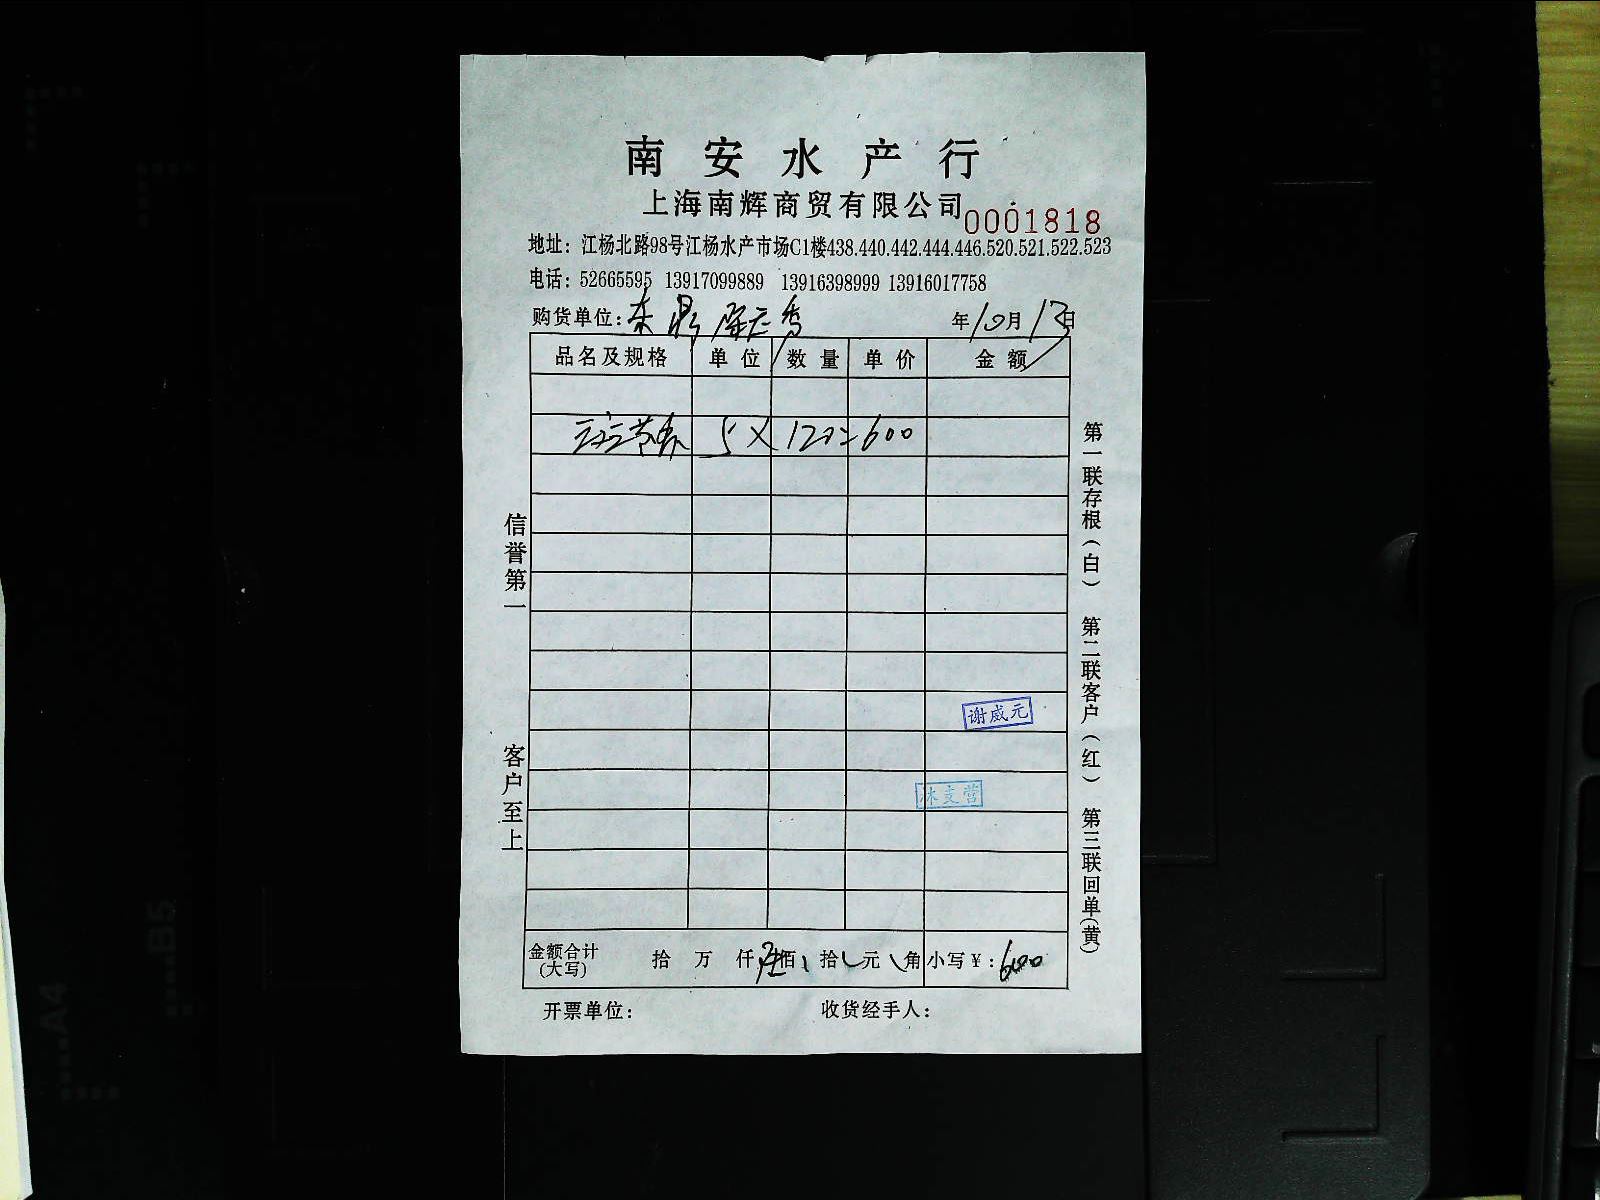 南安水产行
上海南辉商贸有限公司 0001818
地址：江杨北路98号江杨水产市场C1楼438.440.442.444.446.520.521.522.523
电话：52665595 13917099889 13916398999 13916017758
购货单位： 年10月13日
品名及规格 单位 数量 单价 金额
5×120=600
谢威元
金额合计（大写） 拾 万 仟 佰 拾 元 角 小写￥：600
开票单位： 收货经手人：
信誉第一
客户至上
第一联存根（白） 第二联客户（红） 第三联回单（黄）